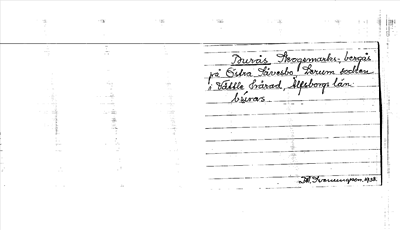 Burås Skogsmarks-bergås
på Östra Sävesbo, Lerum socken
i Vättle härad, Älfsborgs län
búras.
1938